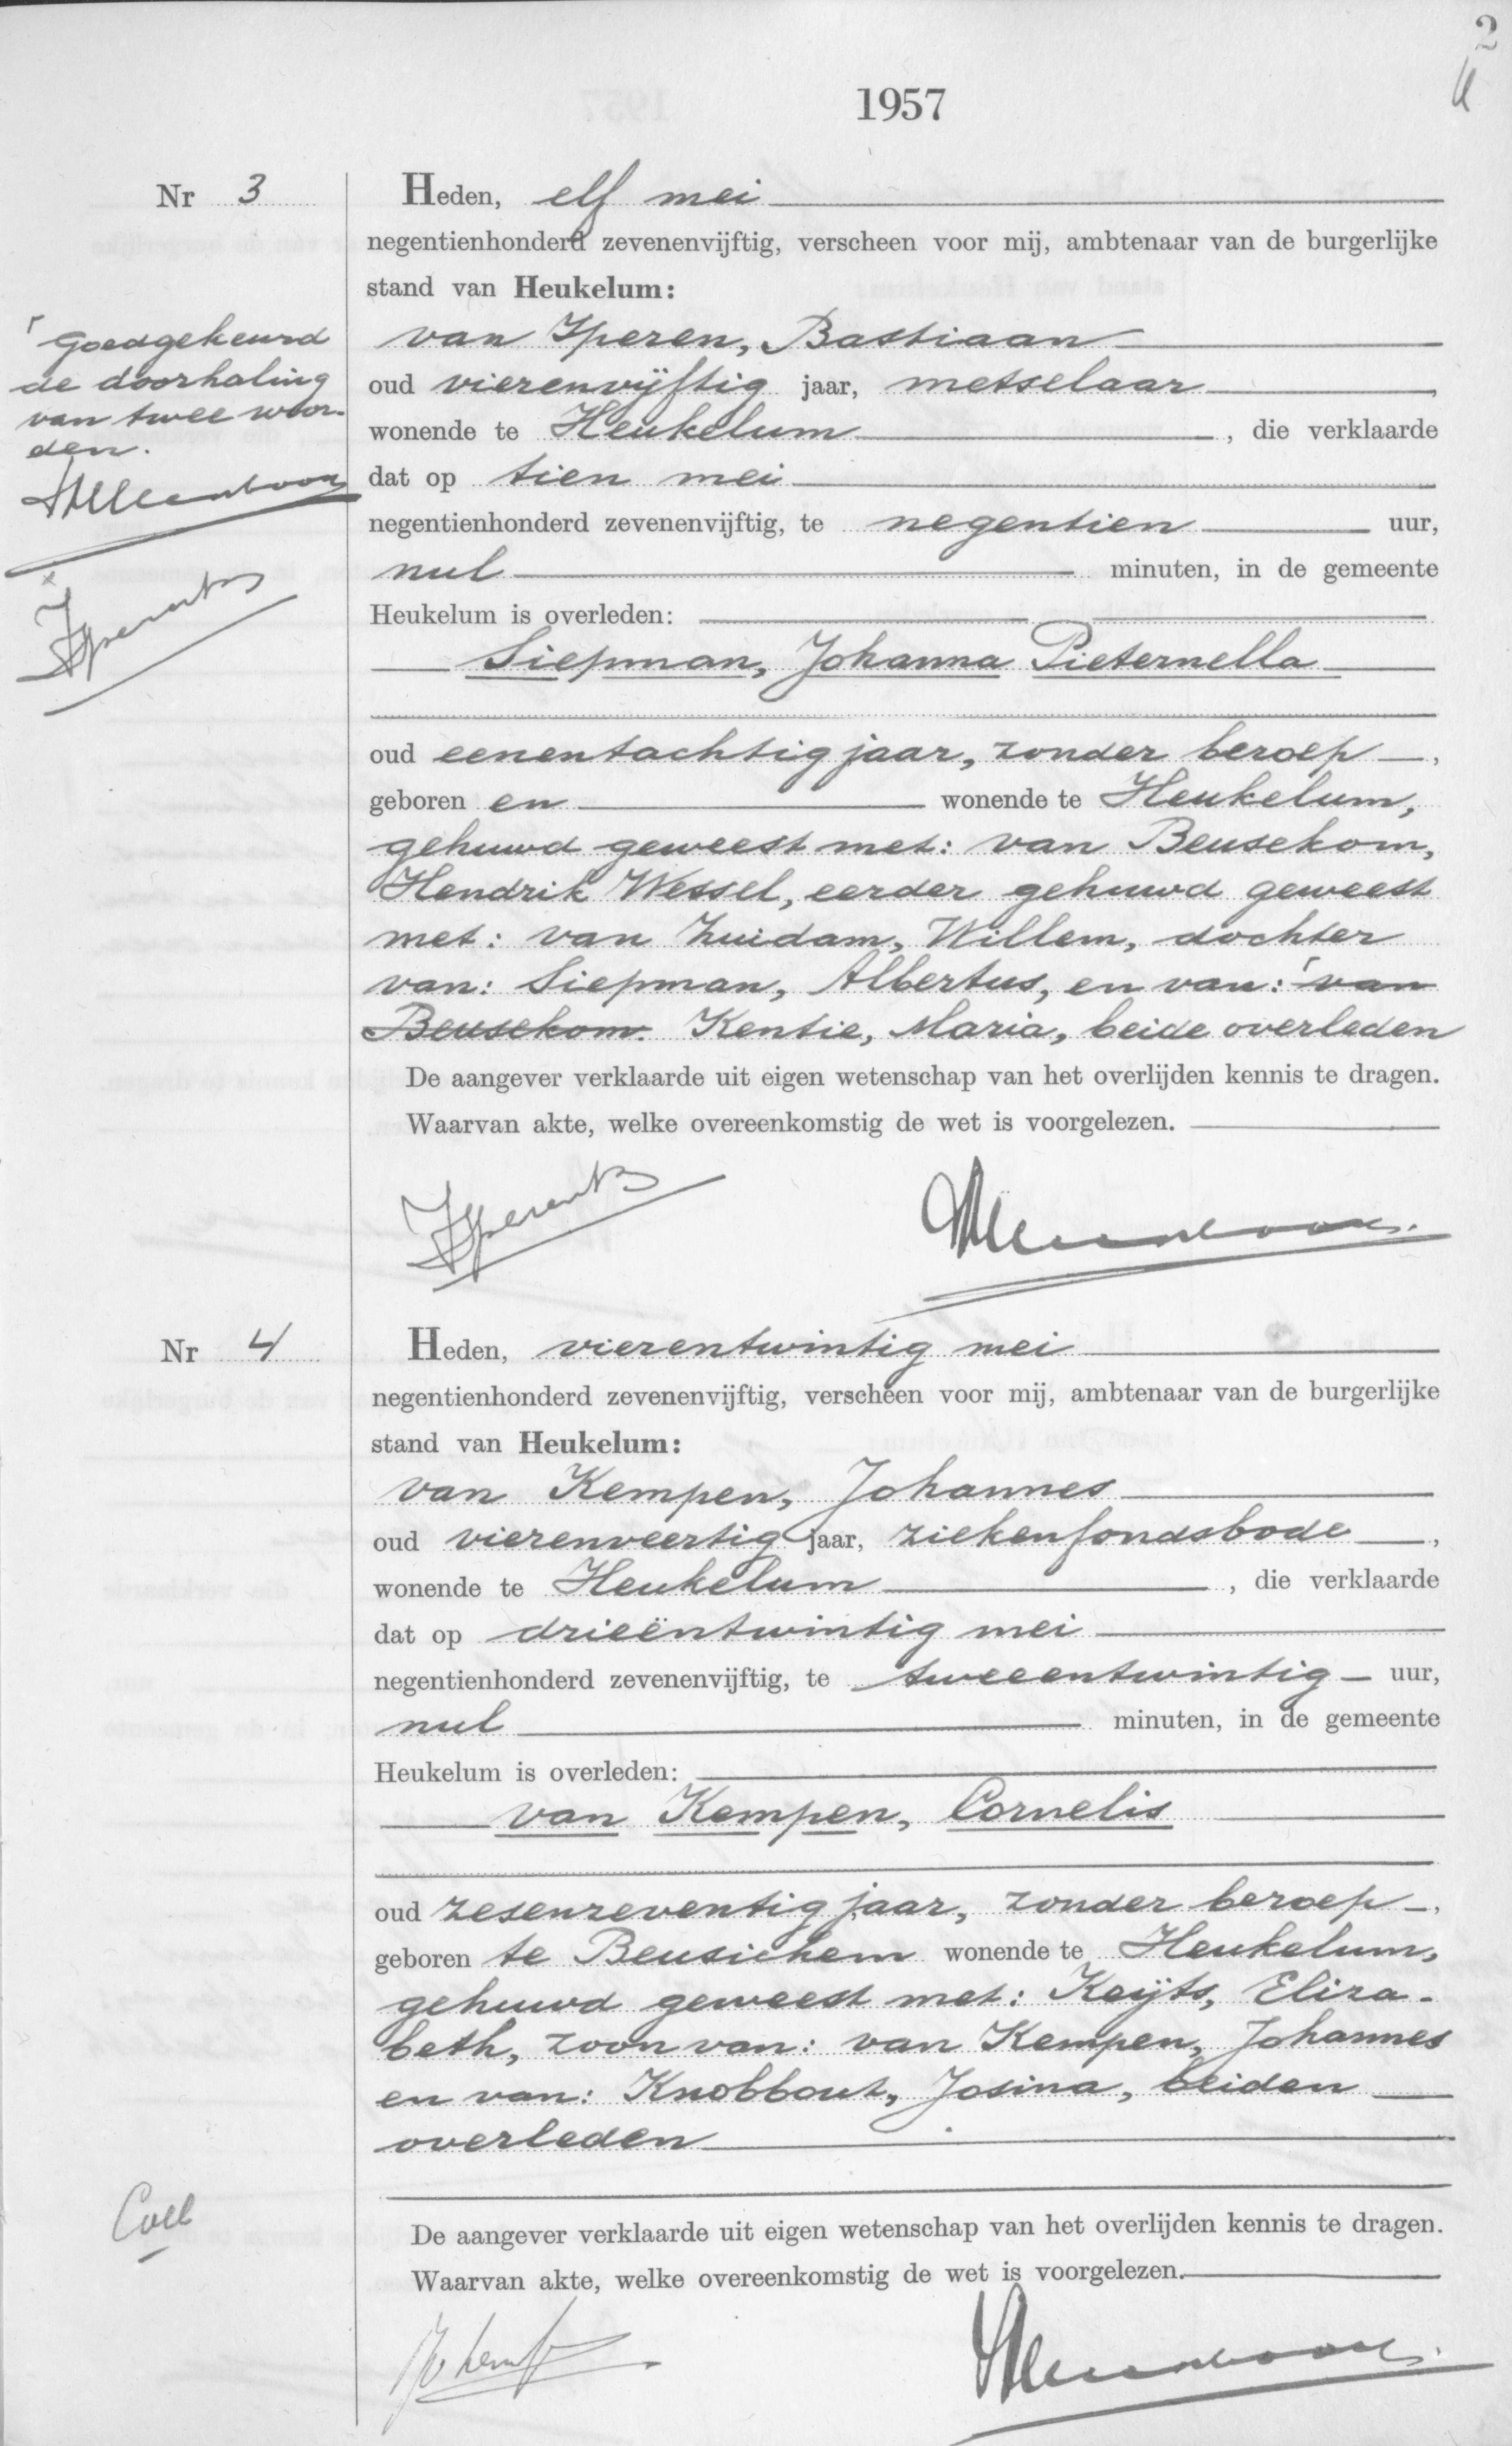 2
1957
Nr 3
Heden, elf mei
negentienhonderd zevenenvijftig, verscheen voor mij, ambtenaar van de burgerlijke
stand van Heukelum:
van Iperen, Bastiaan
oud vierenvijftig jaar, metselaar,
wonende te Heukelum, die verklaarde
dat op tien mei
negentienhonderd zevenenvijftig, te negentien uur,
nul minuten, in de gemeente
Heukelum is overleden:
Siepman, Johanna Pieternella
oud eenentachtig jaar, zonder beroep,
geboren en wonende te Heukelum,
gehuwd geweest met: van Beusekom,
Hendrik Wessel, eerder gehuwd geweest
met: van Zuidam, Willem, dochter
van: Siepman, Albertus, en van: van
Beusekom. Kentie, Maria, beide overleden
De aangever verklaarde uit eigen wetenschap van het overlijden kennis te dragen.
Waarvan akte, welke overeenkomstig de wet is voorgelezen.
Goedgekeurd
de doorhaling
van twee woor-
den.
Nr 4
Heden, vierentwintig mei
negentienhonderd zevenenvijftig, verscheen voor mij, ambtenaar van de burgerlijke
stand van Heukelum:
van Kempen, Johannes
oud vierenveertig jaar, ziekenfondsbode,
wonende te Heukelum, die verklaarde
dat op drieëntwintig mei
negentienhonderd zevenenvijftig, te tweeentwintig uur,
nul minuten, in de gemeente
Heukelum is overleden:
van Kempen, Cornelis
oud zesenzeventig jaar, zonder beroep,
geboren te Beusichem wonende te Heukelum,
gehuwd geweest met: Keijts, Eliza-
beth, zoon van: van Kempen, Johannes
en van: Knobbout, Josina, beiden
overleden
De aangever verklaarde uit eigen wetenschap van het overlijden kennis te dragen.
Waarvan akte, welke overeenkomstig de wet is voorgelezen.
Coll